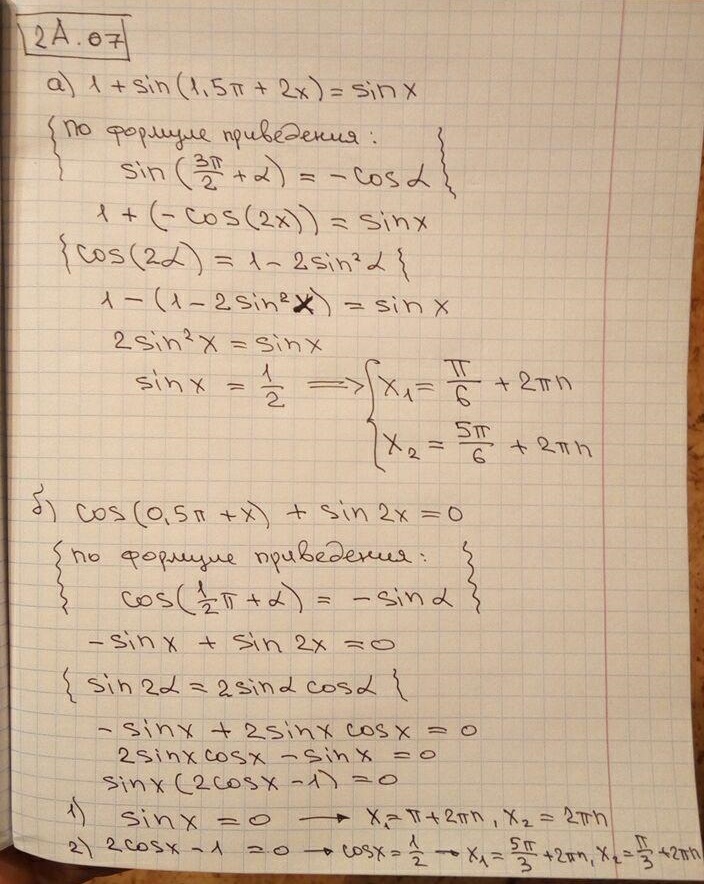 2А.07
а) 1 + sin(1,5π + 2x) = sin x
{ по формуле приведения: }
sin(3π/2 + α) = -cos α
1 + (-cos(2x)) = sin x
{ cos(2α) = 1 - 2sin²α }
1 - (1 - 2sin²x) = sin x
2sin²x = sin x
sin x = 1/2 ⟹ { x₁ = π/6 + 2πn
x₂ = 5π/6 + 2πn
б) cos(0,5π + x) + sin 2x = 0
{ по формуле приведения: }
cos(1/2π + α) = -sin α
-sin x + sin 2x = 0
{ sin 2α = 2sin α cos α }
-sin x + 2sin x cos x = 0
2sin x cos x - sin x = 0
sin x (2cos x - 1) = 0
1) sin x = 0 → x₁ = π + 2πn, x₂ = 2πn
2) 2cos x - 1 = 0 → cos x = 1/2 → x₁ = 5π/3 + 2πn, x₂ = π/3 + 2πn